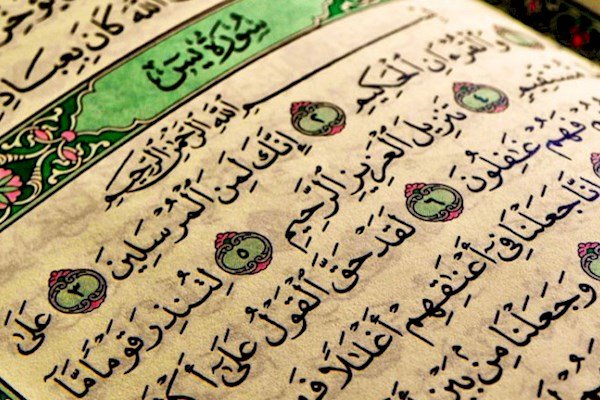 ٱللَّهَ كَانَ بِعِبَادِ
سُورَةُ يسٓ
ٱللَّهِ ٱلرَّحْمَٰنِ ٱلرَّحِيمِ
وَٱلْقُرْءَانِ ٱلْحَكِيمِ ٢ إِنَّكَ لَمِنَ ٱلْمُرْسَلِينَ ٣ عَلَىٰ
مُّسْتَقِيمٍ ٤ تَنزِيلَ ٱلْعَزِيزِ ٱلرَّحِيمِ ٥ لِتُنذِرَ قَوْمًا مَّآ
فَهُمْ غَٰفِلُونَ ٦ لَقَدْ حَقَّ ٱلْقَوْلُ عَلَىٰٓ
إِنَّا جَعَلْنَا فِىٓ أَعْنَٰقِهِمْ أَغْلَٰلًا
وَجَعَلْنَا مِنۢ بَيْنِ